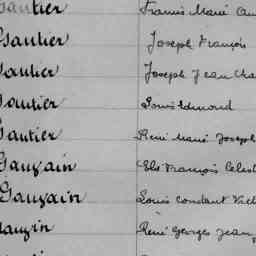 Gautier Francis Marie
Gautier Joseph François
Gautier Joseph Jean
Gautier Louis Edmond
Gautier René Marie Joseph
Gauvain François
Gauvain Louis Constant
Gauvin René Georges Jean